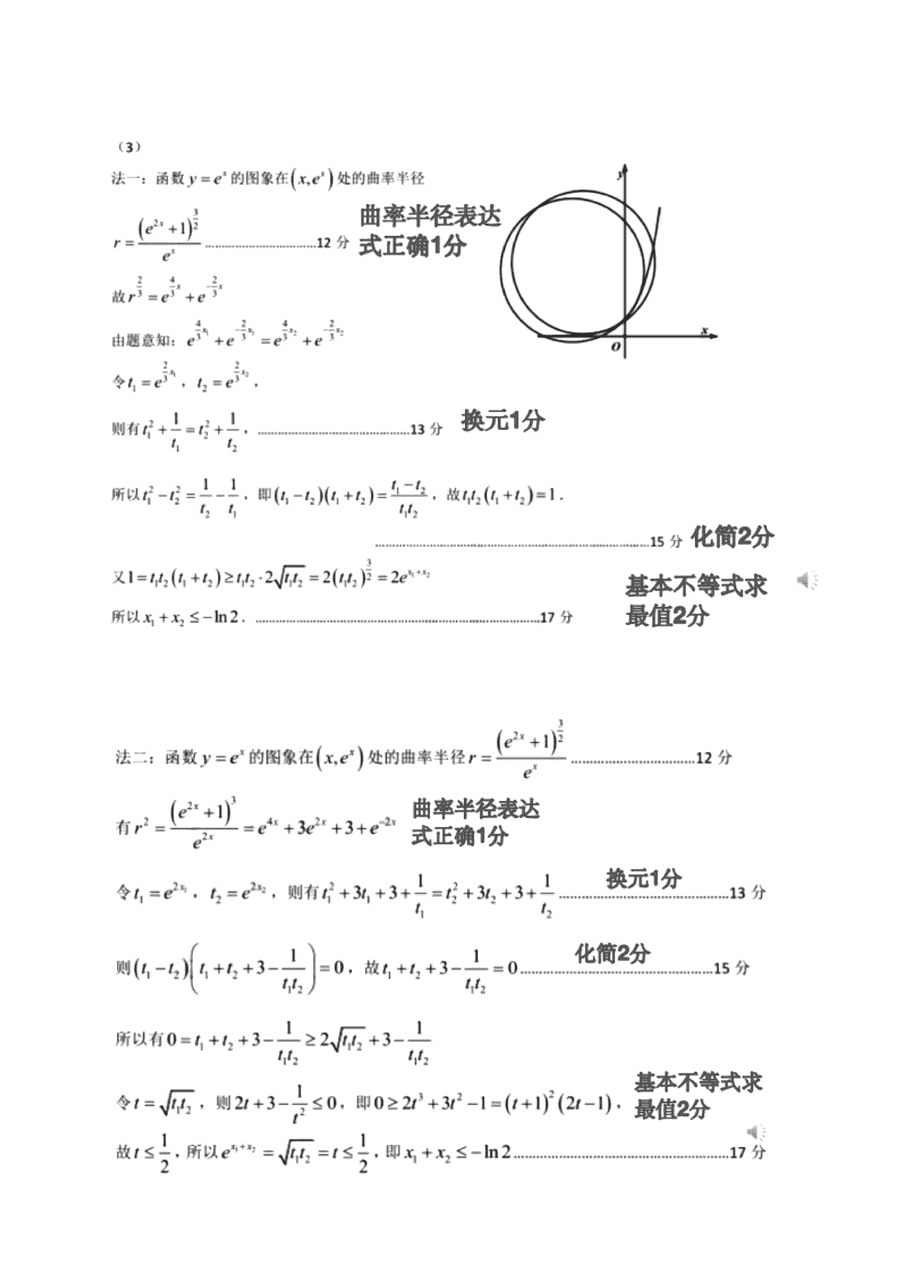 (3)
法一：函数 y = e^x 的图象在 (x, e^x) 处的曲率半径
r = (e^{2x} + 1)^{3/2} / e^x ..............................12 分
曲率半径表达
式正确1分
故 r^{2/3} = e^{4/3 x} + e^{-2/3 x}
由题意知：e^{4/3 x₁} + e^{-2/3 x₁} = e^{4/3 x₂} + e^{-2/3 x₂}
令 t₁ = e^{2/3 x₁}，t₂ = e^{2/3 x₂}，
y
x
O
则有 t₁² + 1/t₁ = t₂² + 1/t₂，..............................13 分
换元1分
所以 t₁² − t₂² = 1/t₂ − 1/t₁，即 (t₁ − t₂)(t₁ + t₂) = (t₁ − t₂)/(t₁t₂)，故 t₁t₂(t₁ + t₂) = 1．
..............................15 分 化简2分
又 1 = t₁t₂(t₁ + t₂) ≥ t₁t₂ · 2√(t₁t₂) = 2(t₁t₂)^{3/2} = 2e^{x₁+x₂}
所以 x₁ + x₂ ≤ −ln 2．..............................17 分
基本不等式求
最值2分
法二：函数 y = e^x 的图象在 (x, e^x) 处的曲率半径 r = (e^{2x} + 1)^{3/2} / e^x ..............................12 分
有 r² = (e^{2x} + 1)³ / e^{2x} = e^{4x} + 3e^{2x} + 3 + e^{−2x}
曲率半径表达
式正确1分
令 t₁ = e^{2x₁}，t₂ = e^{2x₂}，则有 t₁² + 3t₁ + 3 + 1/t₁ = t₂² + 3t₂ + 3 + 1/t₂ ..............................13 分
换元1分
则 (t₁ − t₂)(t₁ + t₂ + 3 − 1/(t₁t₂)) = 0，故 t₁ + t₂ + 3 − 1/(t₁t₂) = 0 ..............................15 分
化简2分
所以有 0 = t₁ + t₂ + 3 − 1/(t₁t₂) ≥ 2√(t₁t₂) + 3 − 1/(t₁t₂)
令 t = √(t₁t₂)，则 2t + 3 − 1/t² ≤ 0，即 0 ≥ 2t³ + 3t² − 1 = (t + 1)²(2t − 1)，
基本不等式求
最值2分
故 t ≤ 1/2，所以 e^{x₁+x₂} = √(t₁t₂) = t ≤ 1/2，即 x₁ + x₂ ≤ −ln 2 ..............................17 分